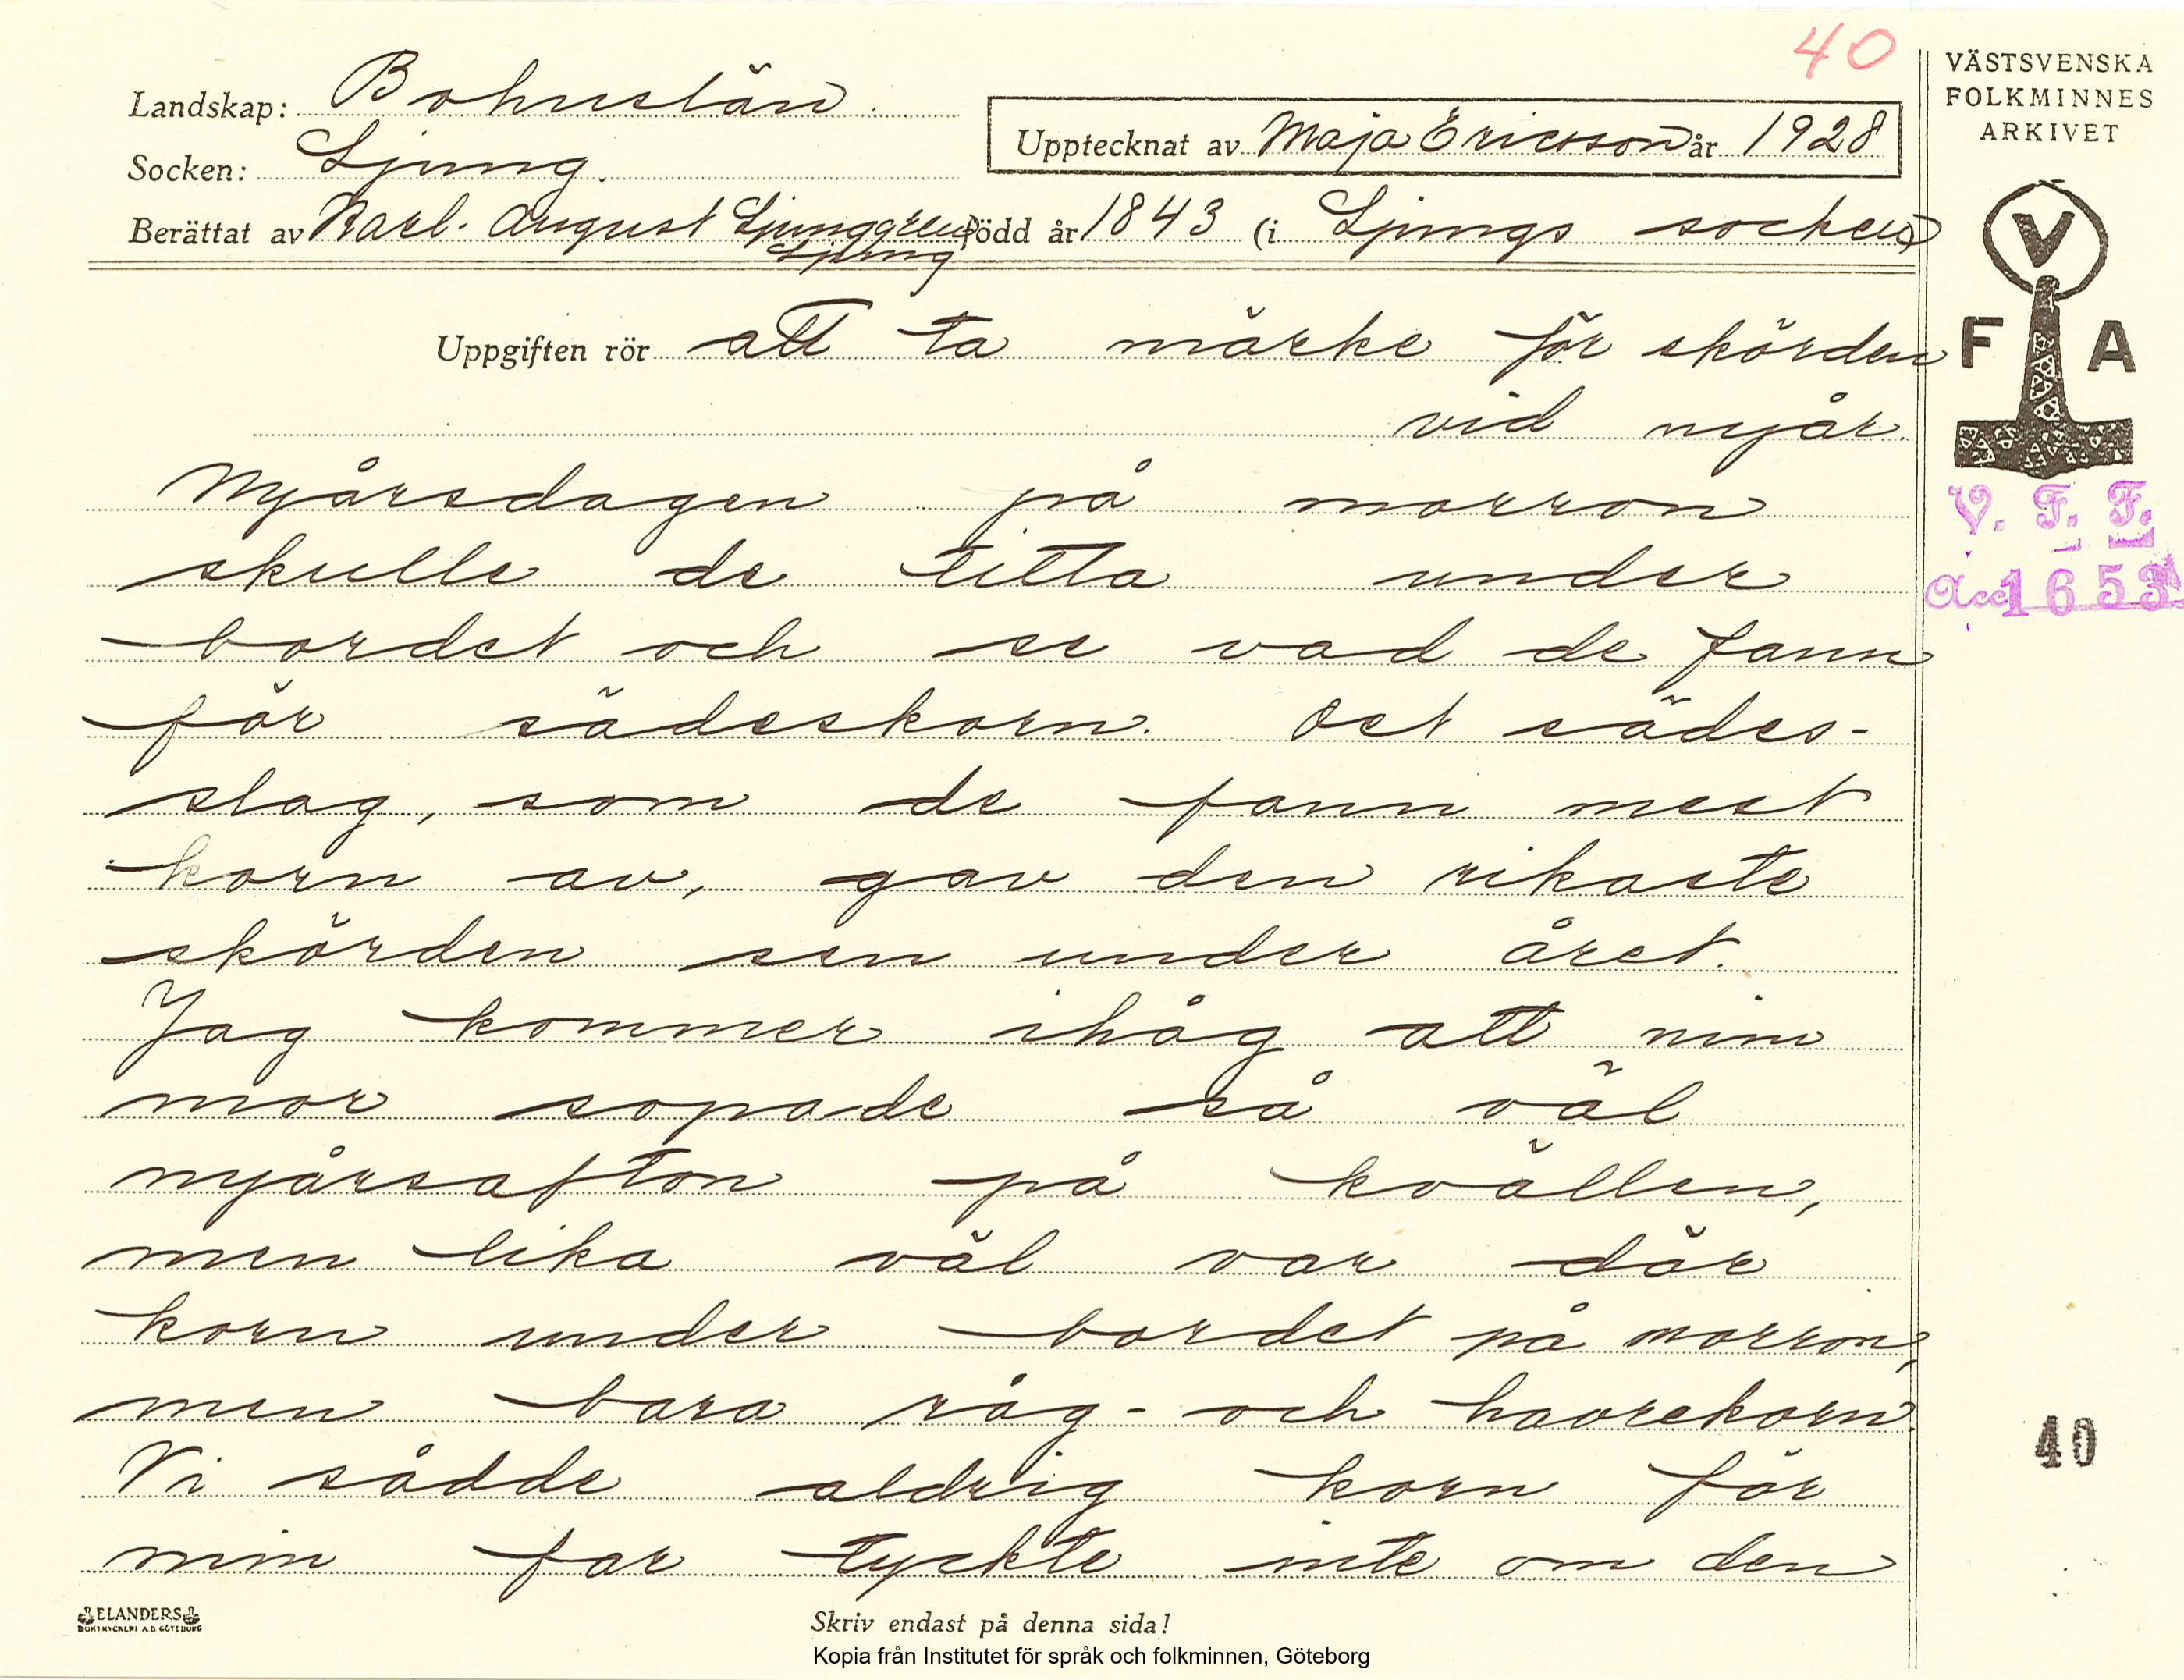 40
Landskap: Bohuslän.
Socken: Ljung.
Upptecknat av Maja Ericsson år 1928
Berättat av Karl-August Ljunggren född år 1843 (i Ljungs socken)
Ljung
Uppgiften rör att ta märke för skörden
vid nyår.
Nyårsdagen på morron
skulle de titta under
bordet och se vad de fann
för sädeskorn. Det sädes-
slag, som de fann mest
korn av, gav den rikaste
skörden sen under året.
Jag kommer ihåg att min
mor sopade så väl
nyårsafton på kvällen,
men lika väl var där
korn under bordet på morron,
men bara råg- och havrekorn.
Vi sådde aldrig korn för
min far tyckte inte om den
VÄSTSVENSKA
FOLKMINNES
ARKIVET
V
F A
V. F. F.
Acc 1653
40
ELANDERS
BOKTRYCKERI A.B. GÖTEBORG
Skriv endast på denna sida!
Kopia från Institutet för språk och folkminnen, Göteborg